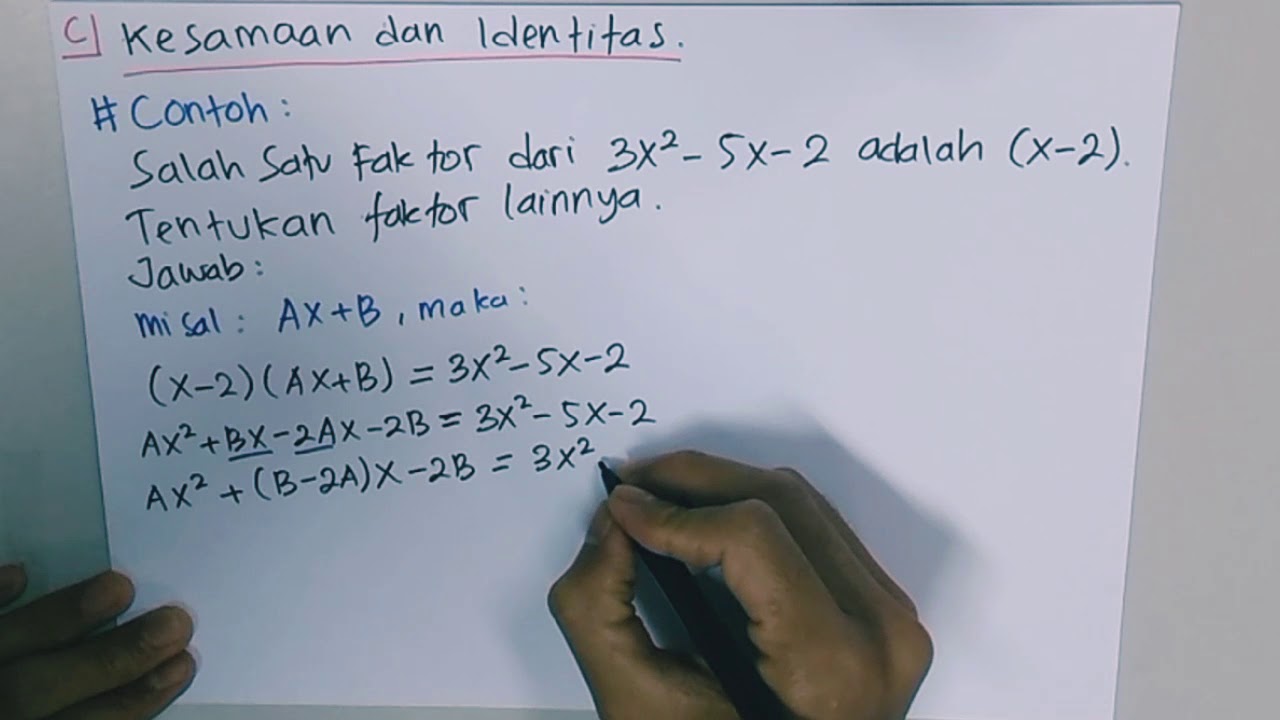 C] Kesamaan dan Identitas.
# Contoh:
Salah Satu Faktor dari 3x² - 5x - 2 adalah (x-2).
Tentukan faktor lainnya.
Jawab:
misal: Ax+B, maka:
(x-2)(Ax+B) = 3x² - 5x - 2
Ax² + Bx - 2Ax - 2B = 3x² - 5x - 2
Ax² + (B-2A)x - 2B = 3x²